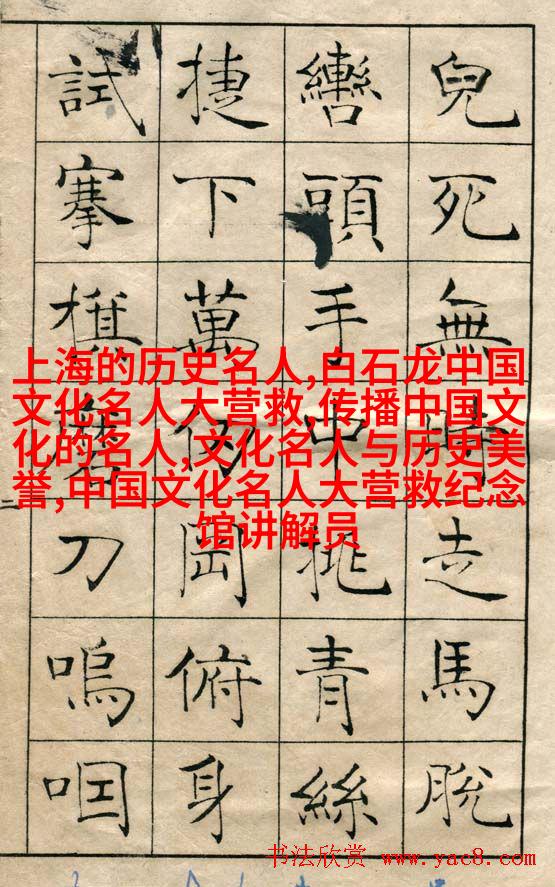 兒死無時走馬脫
轡頭手中挑青絲
捷下萬仞岡俯身
試搴旗磨刀嗚咽
上海的历史名人,白石龙中国
文化名人大营救,传播中国文
化的名人,文化名人与历史美
誉,中国文化名人大营救纪念
馆讲解员
书法欣赏 www.yac8.com